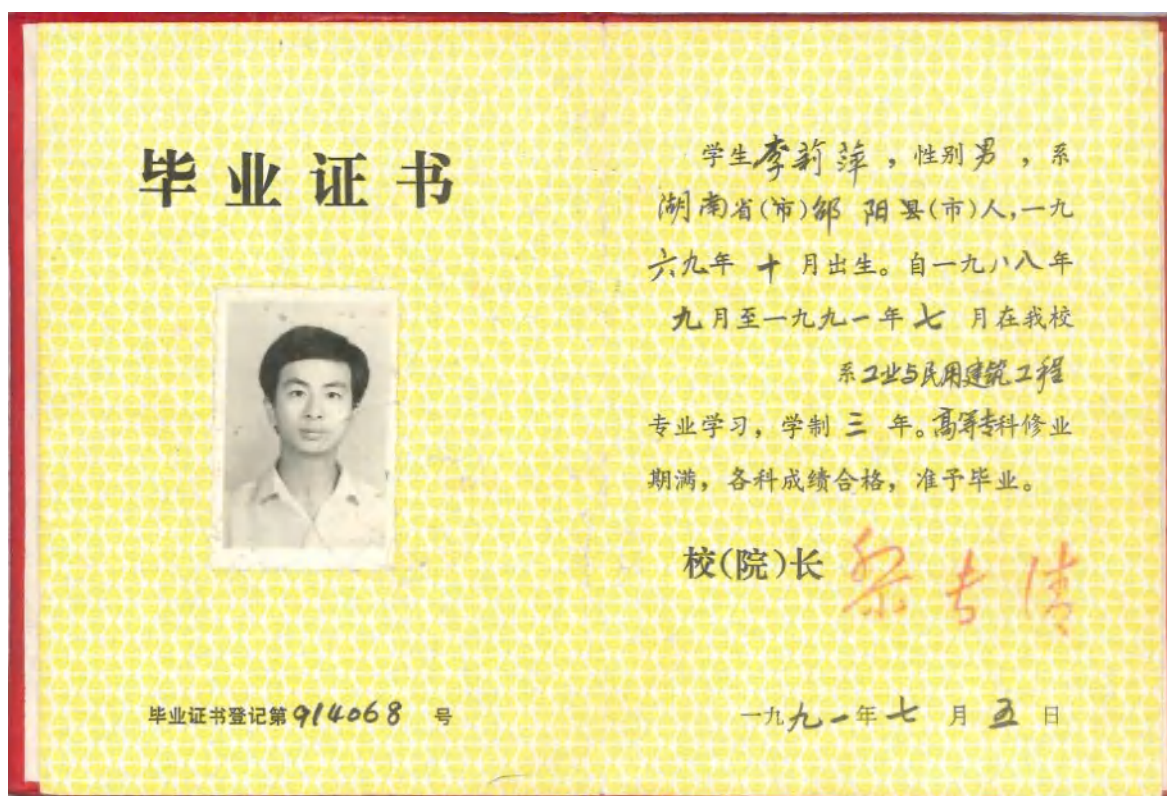 毕业证书
毕业证书登记第914068号
学生李莉萍，性别男，系
湖南省(市)邵阳县(市)人，一九
六九年十月出生。自一九八八年
九月至一九九一年七月在我校
系工业与民用建筑工程
专业学习，学制三年。高等专科修业
期满，各科成绩合格，准予毕业。
校(院)长
一九九一年七月五日